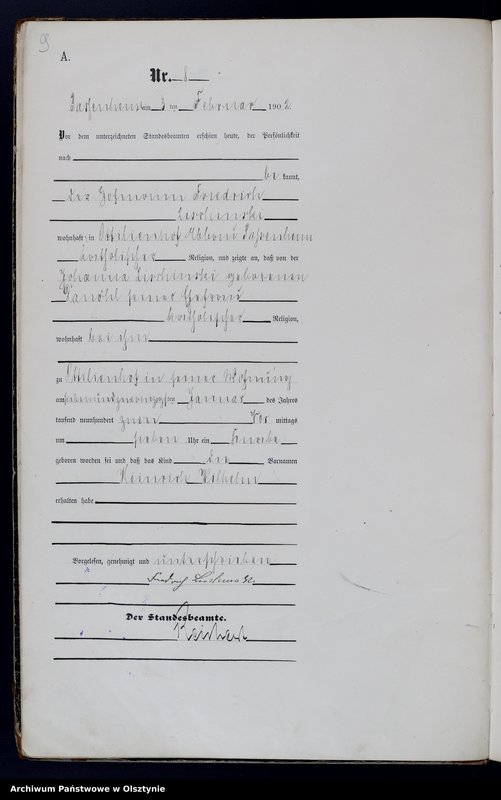 9
A.
Nr. 8
Passenheim am 3 ten Februar 1902.
Vor dem unterzeichneten Standesbeamten erschien heute, der Persönlichkeit
nach
be kannt,
der Hofmann Friedrich
wohnhaft in Ottilienhof Abbau Passenheim
katholischer Religion, und zeigte an, daß von der
Johanna geborenen
seiner Ehefrau
katholischer Religion,
wohnhaft bei ihm
zu Ottilienhof in seiner Wohnung
am siebenundzwanzigsten Januar des Jahres
tausend neunhundert zwei Vor mittags
um sieben Uhr ein Knabe
geboren worden sei und daß das Kind die Vornamen
Heinrich Wilhelm
erhalten habe
Vorgelesen, genehmigt und unterschrieben
Der Standesbeamte.
Archiwum Państwowe w Olsztynie